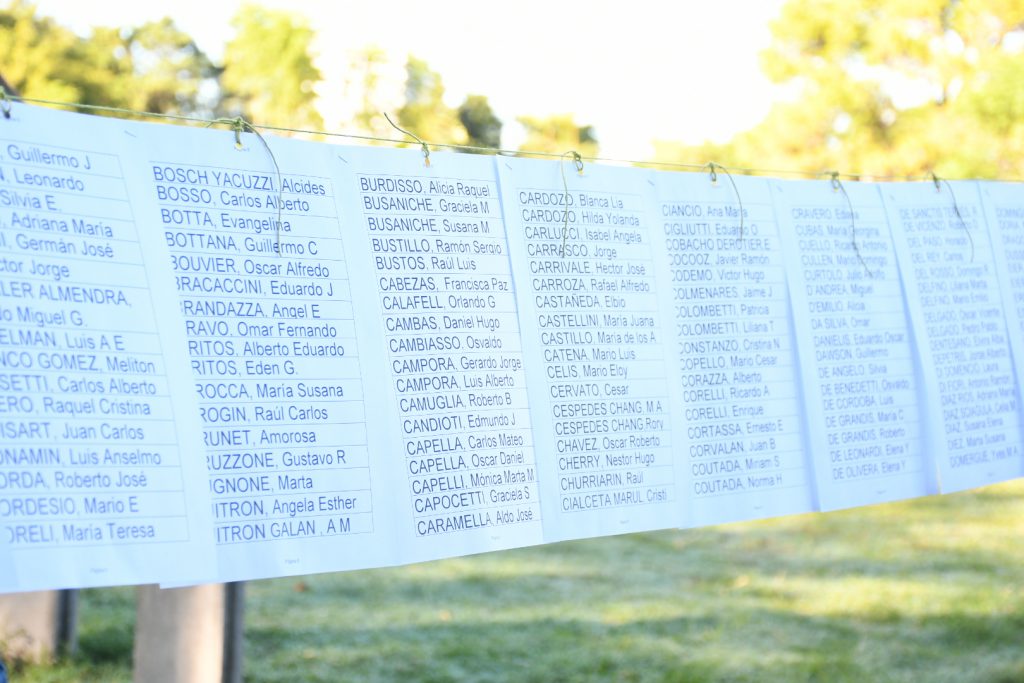 , Guillermo J
, Leonardo
Silvia E.
, Adriana María
, Germán José
ctor Jorge
LER ALMENDRA,
do Miguel G.
ELMAN, Luis A E
NCO GOMEZ, Meliton
SETTI, Carlos Alberto
ERO, Raquel Cristina
ISART, Juan Carlos
ONAMIN, Luis Anselmo
ORDA, Roberto José
ORDESIO, Mario E
ORELI, María Teresa
BOSCH YACUZZI, Alcides
BOSSO, Carlos Alberto
BOTTA, Evangelina
BOTTANA, Guillermo C
BOUVIER, Oscar Alfredo
BRACACCINI, Eduardo J
BRANDAZZA, Angel E
RAVO, Omar Fernando
RITOS, Alberto Eduardo
RITOS, Eden G.
ROCCA, María Susana
ROGIN, Raúl Carlos
RUNET, Amorosa
RUZZONE, Gustavo R
IGNONE, Marta
ITRON, Angela Esther
ITRON GALAN , A M
BURDISSO, Alicia Raquel
BUSANICHE, Graciela M
BUSANICHE, Susana M
BUSTILLO, Ramón Sergio
BUSTOS, Raúl Luis
CABEZAS, Francisca Paz
CALAFELL, Orlando G
CAMBAS, Daniel Hugo
CAMBIASSO, Osvaldo
CAMPORA, Gerardo Jorge
CAMPORA, Luis Alberto
CAMUGLIA, Roberto B
CANDIOTI, Edmundo J
CAPELLA, Carlos Mateo
CAPELLA, Oscar Daniel
CAPELLI, Mónica Marta M
CAPOCETTI, Graciela S
CARAMELLA, Aldo José
CARDOZO, Blanca Lia
CARDOZO, Hilda Yolanda
CARLUCCI, Isabel Angela
CARRASCO, Jorge
CARRIVALE, Hector José
CARROZA, Rafael Alfredo
CASTAÑEDA, Elbio
CASTELLINI, María Juana
CASTILLO, María de los A
CATENA, Mario Luis
CELIS, Mario Eloy
CERVATO, Cesar
CESPEDES CHANG, M A
CESPEDES CHANG Rory
CHAVEZ, Oscar Roberto
CHERRY, Nestor Hugo
CHURRIARIN, Raúl
CIALCETA MARUL Cristi
CIANCIO, Ana María
CIGLIUTTI, Eduardo O
COBACHO DERDTIER E
COCOOZ, Javier Ramón
CODEMO, Víctor Hugo
COLMENARES, Jaime J
COLOMBETTI, Patricia
COLOMBETTI, Liliana T
CONSTANZO, Cristina N
COPELLO, Mario Cesar
CORAZZA, Alberto
CORELLI, Ricardo A
CORELLI, Enrique
CORTASSA, Ernesto E
CORVALAN, Juan B
COUTADA, Miriam S
COUTADA, Norma H
CRAVERO,
CUBAS, María Georgina
CULLEN, Ricardo Antonio
CURTOLO, Julio Adolfo
D'ANDREA, Miguel
D'EMILIO, Alicia
DA SILVA, Omar
DANIELIS, Eduardo Oscar
DAWSON, Guillermo
DE ANGELO, Silvia
DE BENEDETTI, Osvaldo
DE CORDOBA, Luis
DE GRANDIS, María C
DE GRANDIS, Roberto
DE LEONARDI, Elena Y
DE OLIVERA, Elena Y
DE VICENZO, Roberto
DEL PASO, Horacio
DEL REY, Carlos
DELFINO, Liliana Marta
DELFINO, Mario Emilio
DELGADO, Oscar Vicente
DELGADO, Pedro Pablo
DIAZ RIOS, Adriana María
DIAZ, Susana Elena
DIEZ, María Susana
DOMERGUE, Yves M A